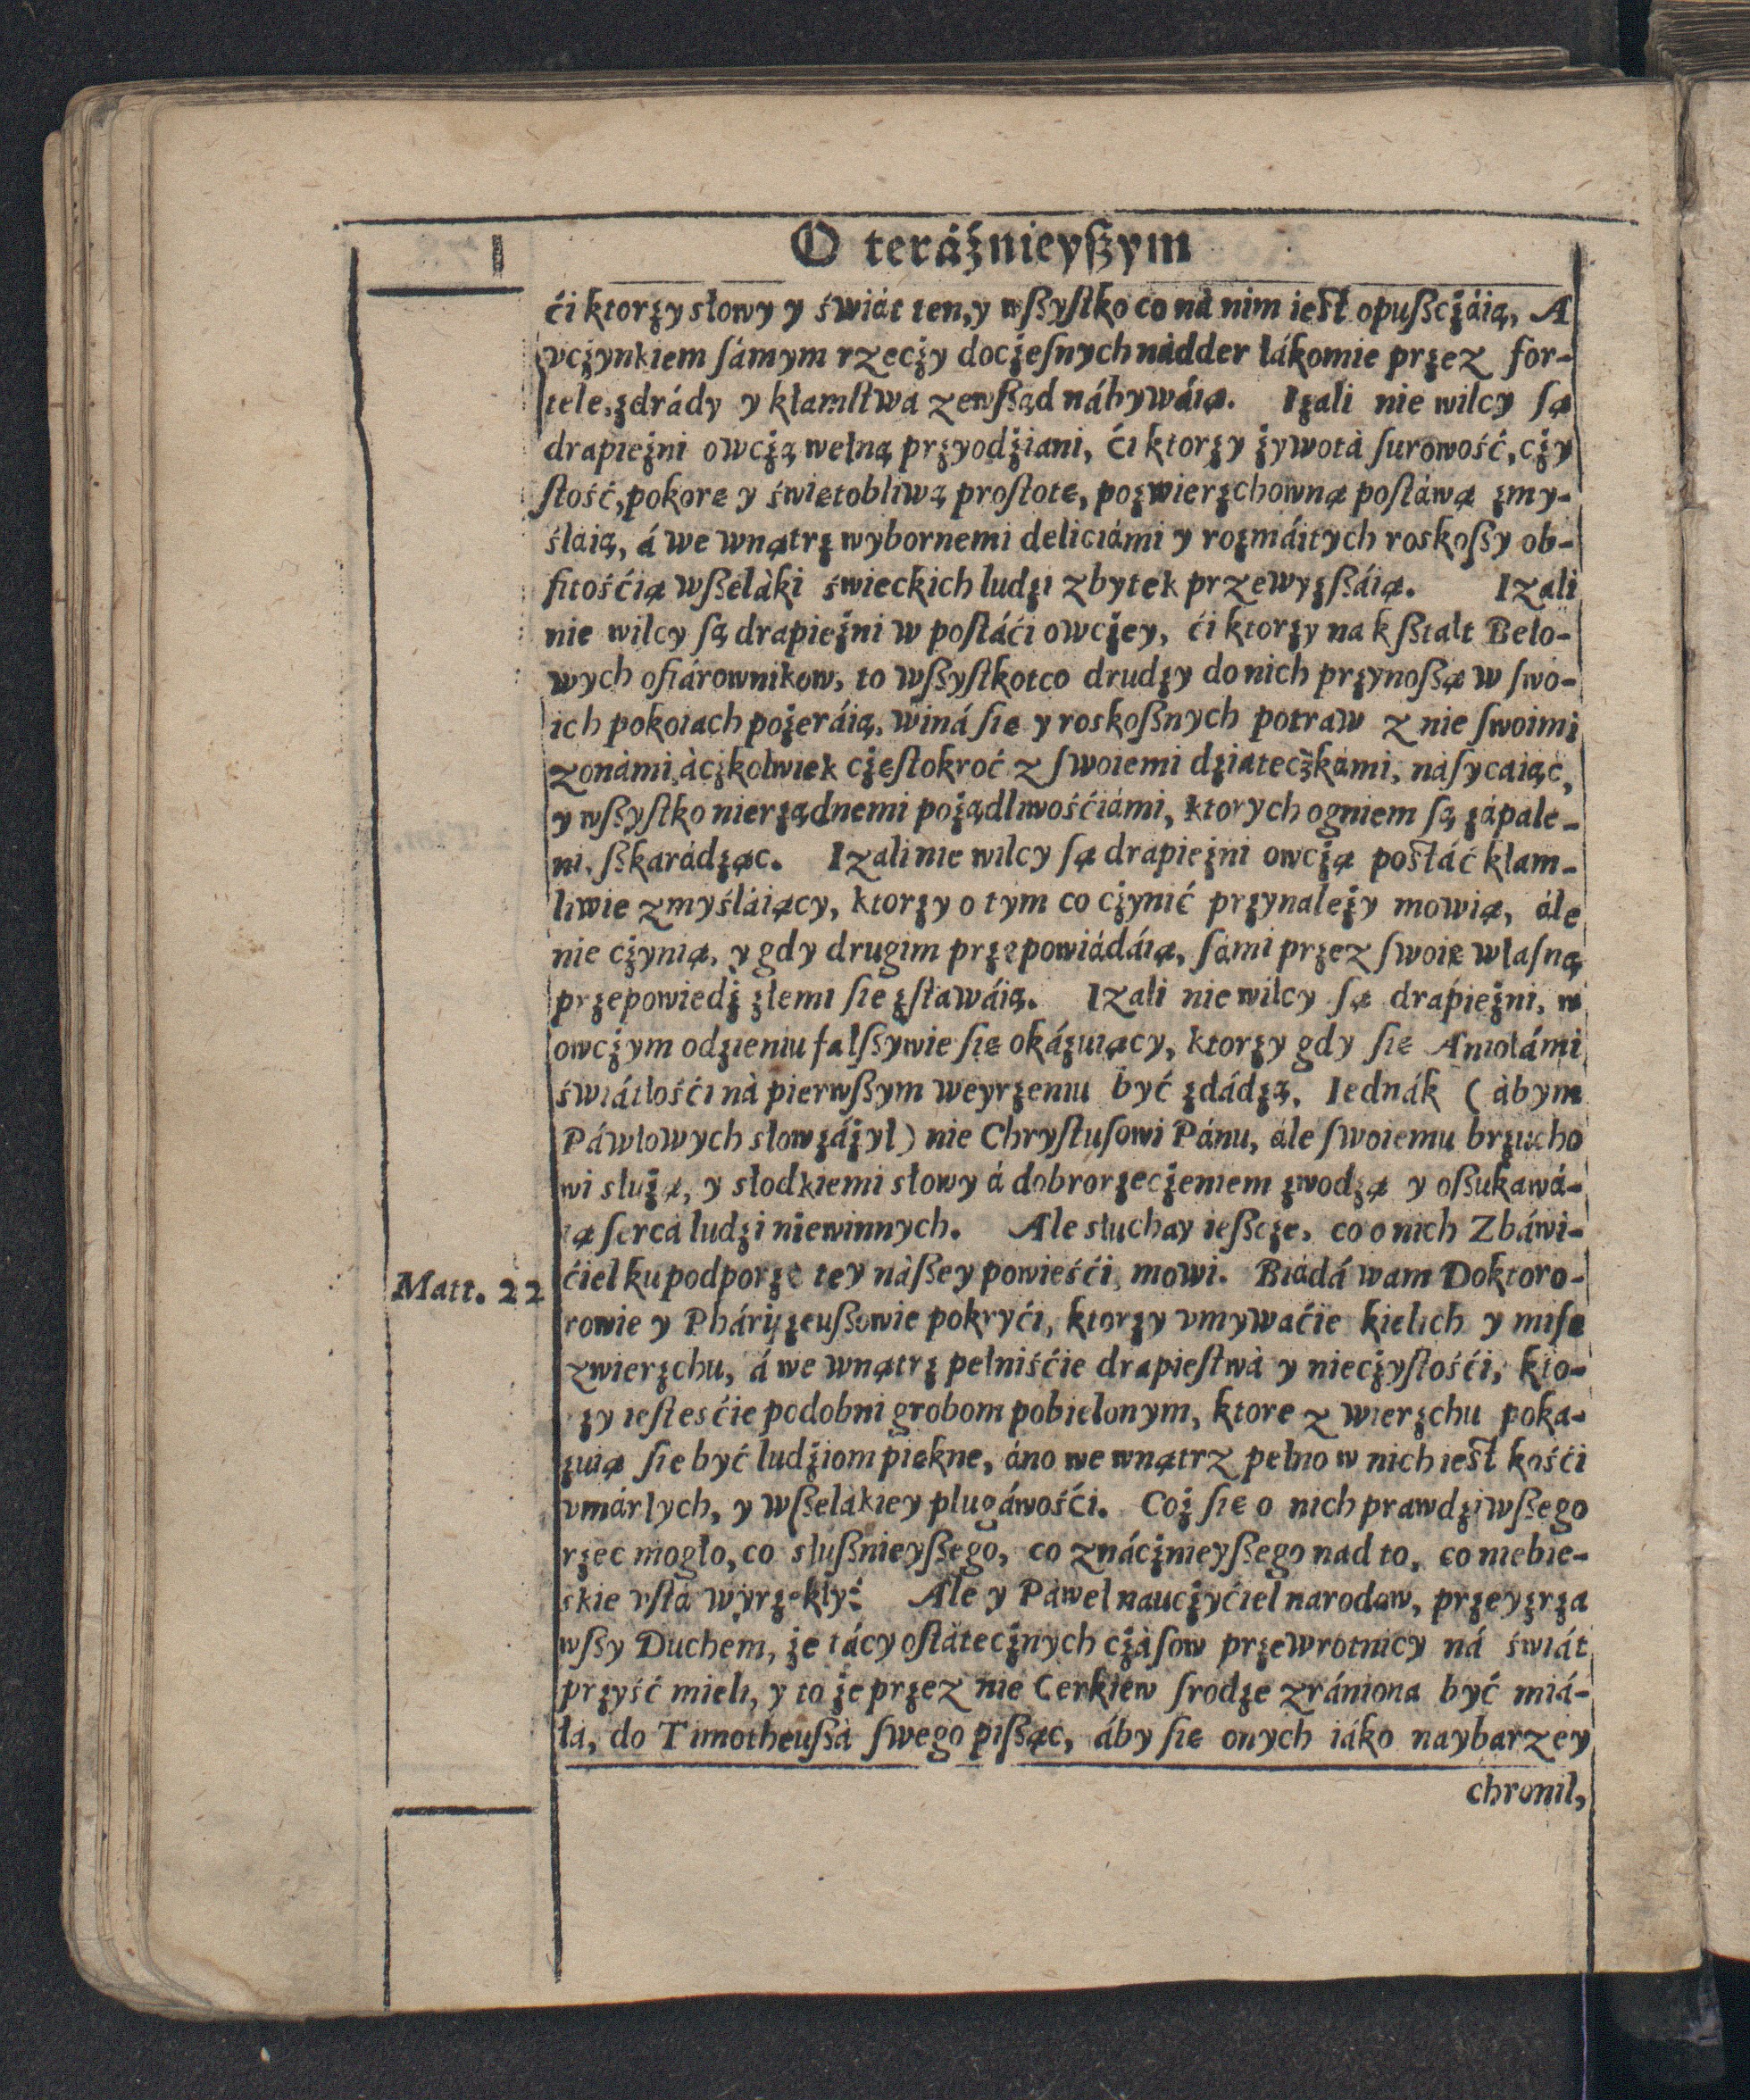 O teráźnieyßzym
ći ktorzy słowy y świát ten, y wßyſtko co ná nim ieſt opußcżáią, A
vcżynkiem ſámym rzecży docżeſnych nádder łákomie przez for-
tele, zdrády y kłamſtwá zewßąd nábywáią. Izali nie wilcy ſą
drapieżni owcżą wełną przyodżiani, ći ktorzy żywotá ſurowość, cży
ſtość, pokorę y świętobliwą proſtotę, pozwierzchowną poſtáwą zmy-
śláią, á we wnątrz wybornemi deliciámi y rozmáitych roskoßy ob-
fitośćią wßeláki świeckich ludzi zbytek przewyzßáią. Izali
nie wilcy ſą drapieżni w poſtáći owcżey, ći ktorzy na kßtałt Belo-
wych ofiárownikow, to wßyſtkotco drudzy do nich przynoßą w ſwo-
ich pokoiach pożeráią, winá ſie y roskoßnych potraw z nie ſwoimi
zonámi, ácżkolwiek cżęſtokroć z ſwoiemi dziatecżkámi, náſycaiąc,
y wßyſtko nierządnemi pożądliwośćiámi, ktorych ogniem ſą zápale-
ni, ßkarádząc. Izali nie wilcy ſą drapieżni owcżą poſtáć kłam-
liwie zmyśláiący, ktorzy o tym co cżynić przynależy mowią, ále
nie cżynią, y gdy drugim przepowiádáią, ſámi przez ſwoię właſną
przepowiedż złemi ſie zſtawáią. Izali nie wilcy ſą drapieżni, w
owcżym odzieniu fałßywie ſię okázuiący, ktorzy gdy ſię Aniołámi
świátłośći ná pierwßym weyrzeniu być zdádzą, Iednák ( ábym
Páwłowych słow záżył) nie Chryſtuſowi Pánu, ále ſwoiemu brzucho
wi służą, y słodkiemi słowy á dobrorzecżeniem zwodzą y oßukawá-
ią ſerca ludzi niewinnych. Ale słuchay ießcze, co o nich Zbáwi-
ćiel ku podporze tey náßey powieśći, mowi. Biádá wam Doktoro-
Matt. 22
rowie y Phárijzeußowie pokryći, ktorzy vmywaćie kielich y miſę
zwierzchu, á we wnątrz pełniśćie drapieſtwá y niecżyſtośći, kto-
zy ieſteśćie podobni grobom pobielonym, ktore z wierzchu poka-
zuią ſie być ludżiom piękne, áno we wnątrz pełno w nich ieſt kośći
vmárłych, y wßelákiey plugáwośći. Coż ſię o nich prawdziwßego
rzec mogło, co słußnieyßego, co znácżnieyßego nad to, co niebie-
skie vſtá wyrzekły: Ale y Páweł naucżyćiel narodow, przeyzrza
wßy Duchem, że tácy oſtátecżnych cżáſow przewrotnicy ná świát
przyść mieli, y to że przez nie Cerkiew ſrodze zrániona być miá-
ła, do Timotheußá ſwego pißąc, áby ſię onych iáko naybarzey
chronil,